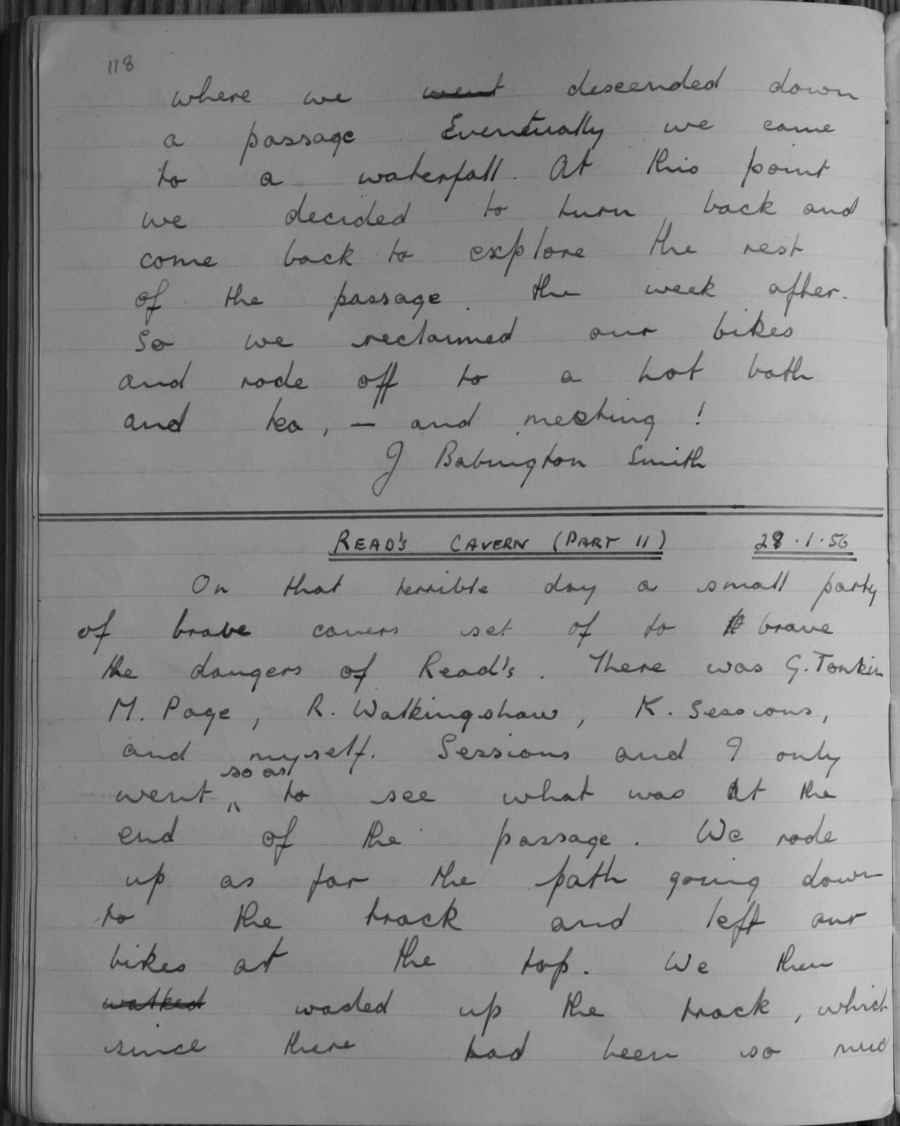 118
where we went descended down
a passage. Eventually we came
to a waterfall. At this point
we decided to turn back and
come back to explore the rest
of the passage. the week after.
So we reclaimed our bikes
and rode off to a hot bath
and tea, — and meeting!
J Babington Smith
READ'S CAVERN (PART II) 28.1.56
On that terrible day a small party
of brave cavers set of to brave
the dangers of Read's. There was G. Tonkin
M. Page, R. Walkingshaw, K. Sessions,
and myself. Sessions and I only
went so as to see what was at the
end of the passage. We rode
up as far the path going down
to the track and left our
bikes at the top. We then
walked waded up the track, which
since there had been so